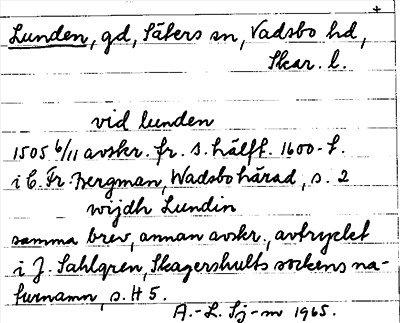 *
Lunden, gd, Säters sn, Vadsbo hd,
Skar. l.
vid lunden
1505 6/11 avskr. fr. s. hälft. 1600-t.
i C. Fr. Bergman, Wadsbo härad, s. 2
wijdh Lundin
samma brev, annan avskr., avtryckt
i J. Sahlgren, Skagershults sockens na-
turnamn, s. H 5.
A.-L. Sj-m 1965.